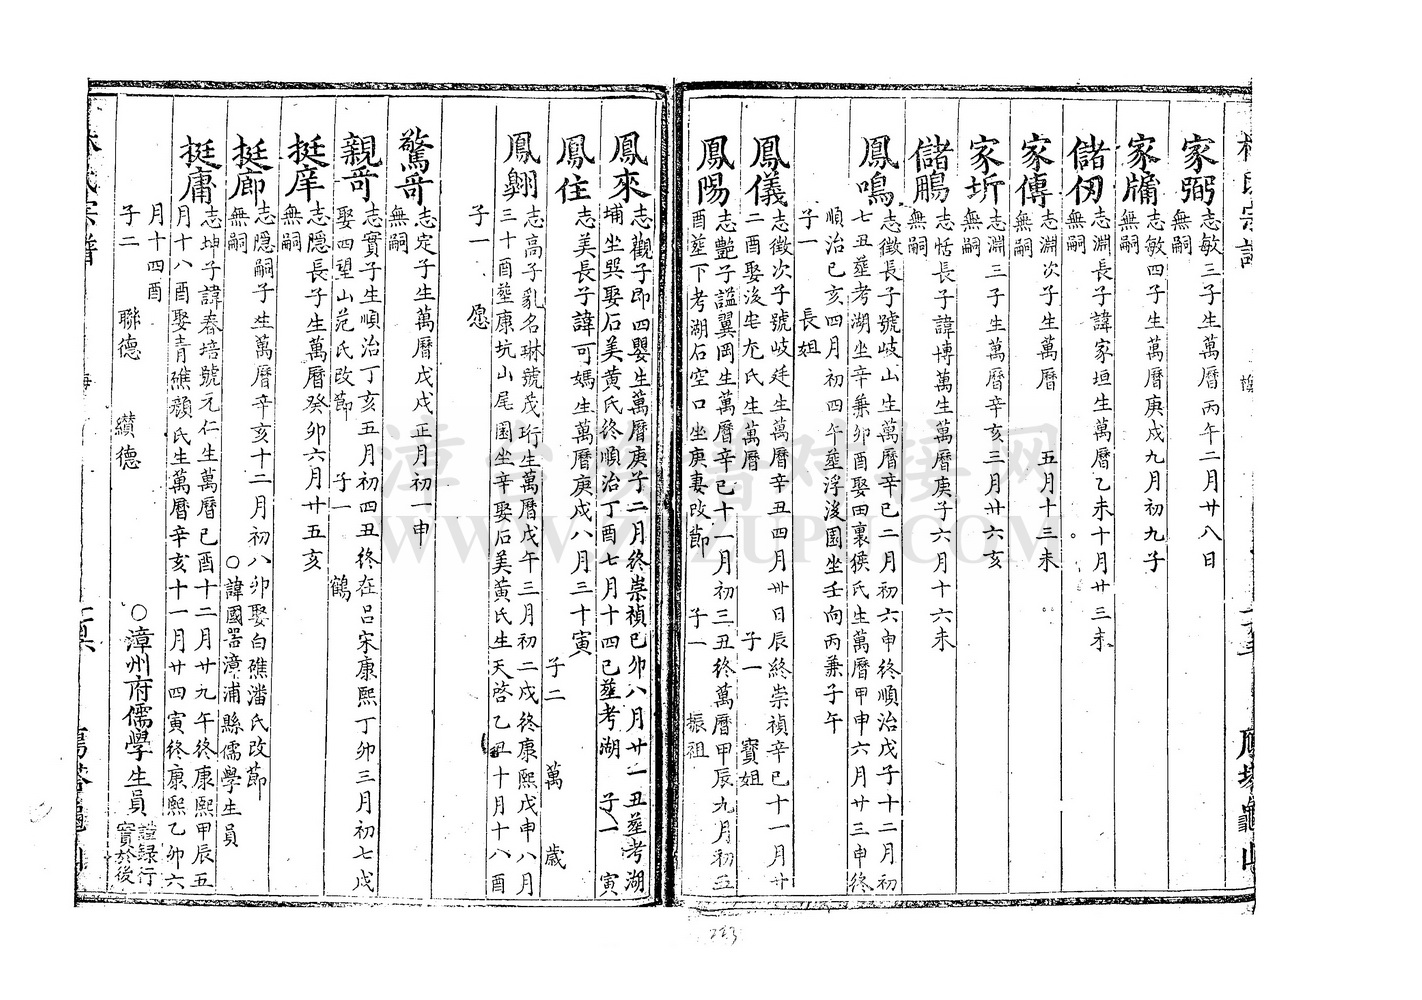 家弼 志敏三子生萬曆丙午二月廿八日
無嗣
家牗 志敏四子生萬曆庚戍九月初九子
無嗣
儲仞 志淵長子諱家垣生萬曆乙未十月廿三未
無嗣
家傳 志淵次子生萬曆 五月十三未
無嗣
家圻 志淵三子生萬曆辛亥三月廿六亥
無嗣
儲鵬 志恬長子諱博萬生萬曆庚子六月十六未
無嗣
鳳鳴 志徵長子號岐山生萬曆辛巳二月初六申終順治戊子十二月初
七丑葬考湖坐辛兼卯酉娶田裏侯氏生萬曆甲申六月廿三申終
順治己亥四月初四午葬浮後園坐壬向丙兼子午
子一 長姐
鳳儀 志徵次子號岐廷生萬曆辛丑四月卅日辰終崇禎辛巳十一月廿
二酉娶後宅尤氏生萬曆 子一 寶姐
鳳陽 志艷子謚翼岡生萬曆辛巳十一月初三丑終萬曆甲辰九月初五
酉葬下考湖石空口坐庚妻改節 子一 振祖
鳳來 志觀子即四嬰生萬曆庚子二月終崇禎己卯八月廿一丑葬考湖
埔坐巽娶石美黄氏終順治丁酉七月十四巳葬考湖 子一 寅
鳳住 志美長子諱可媽生萬曆庚戍八月三十寅
子二 萬 歲
鳳翱 志高子乳名琳號茂珩生萬曆戊午三月初二戍終康熙戊申八月
三十酉葬康坑山尾園坐辛娶石美黄氏生天啓乙丑十月十八酉
子一 愿
驚哥 志定子生萬曆戊戍正月初一申
無嗣
親哥 志實子生順治丁亥五月初四丑終在呂宋康熙丁卯三月初七戍
娶四望山范氏改節 子一 鶴
挺庠 志隱長子生萬曆癸卯六月廿五亥
無嗣
挺廊 志隱嗣子生萬曆辛亥十二月初八卯娶白礁潘氏改節
無嗣 ○諱國器漳浦縣儒學生員
挺庸 志坤子諱春培號元仁生萬曆己酉十二月廿九午終康熙甲辰五
月十八酉娶青礁顏氏生萬曆辛亥十一月廿四寅終康熙乙卯六
月十四酉
子二 聯德 纘德 ○漳州府儒學生員 謹録行
實於後
漳台族谱对接网
WWW.ZTZUPU.COM
253